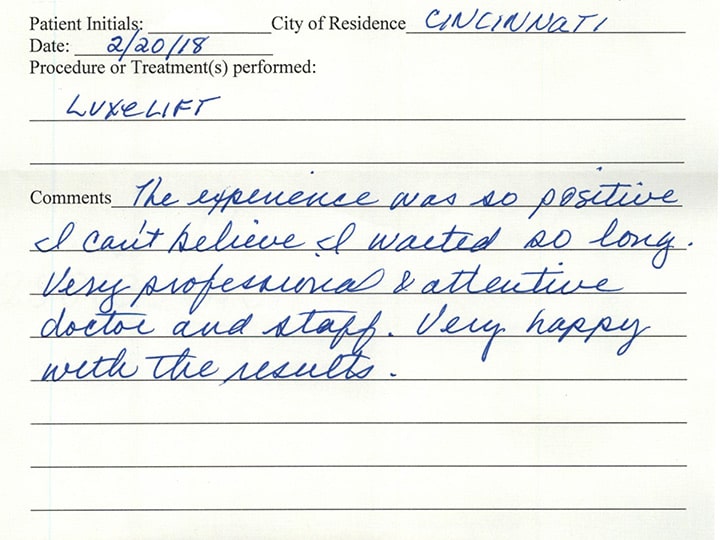 Patient Initials: City of Residence CINCINNATI
Date: 2/20/18
Procedure or Treatment(s) performed:
LUXELIFT
Comments The experience was so positive
I can't believe I waited so long.
Very professional & attentive
doctor and staff. Very happy
with the results.